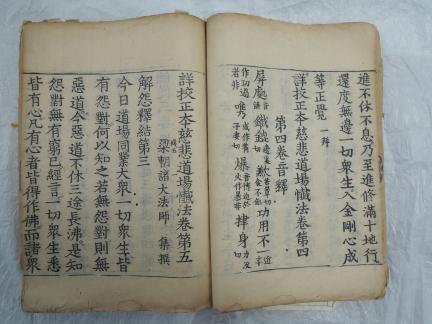 進不休不息乃至進修滿十地行
還度無邊一切衆生入金剛心成
等正覺 一拜
詳挍正夲慈悲道場懺法卷第四
第四卷音釋
屏處 鐵鋑 歉 功用不一
作功過者非 唯 爆 捧身
詳挍正夲慈悲道場懺法卷第五
梁朝諸大法師 集撰
解怨釋結第三
今日道場同業大衆一切衆生皆
有怨對何以知之若無怨對則無
惡道今惡道不休三途長沸是知
怨對無有窮已經言一切衆生悉
皆有心凡有心者皆得作佛而諸衆